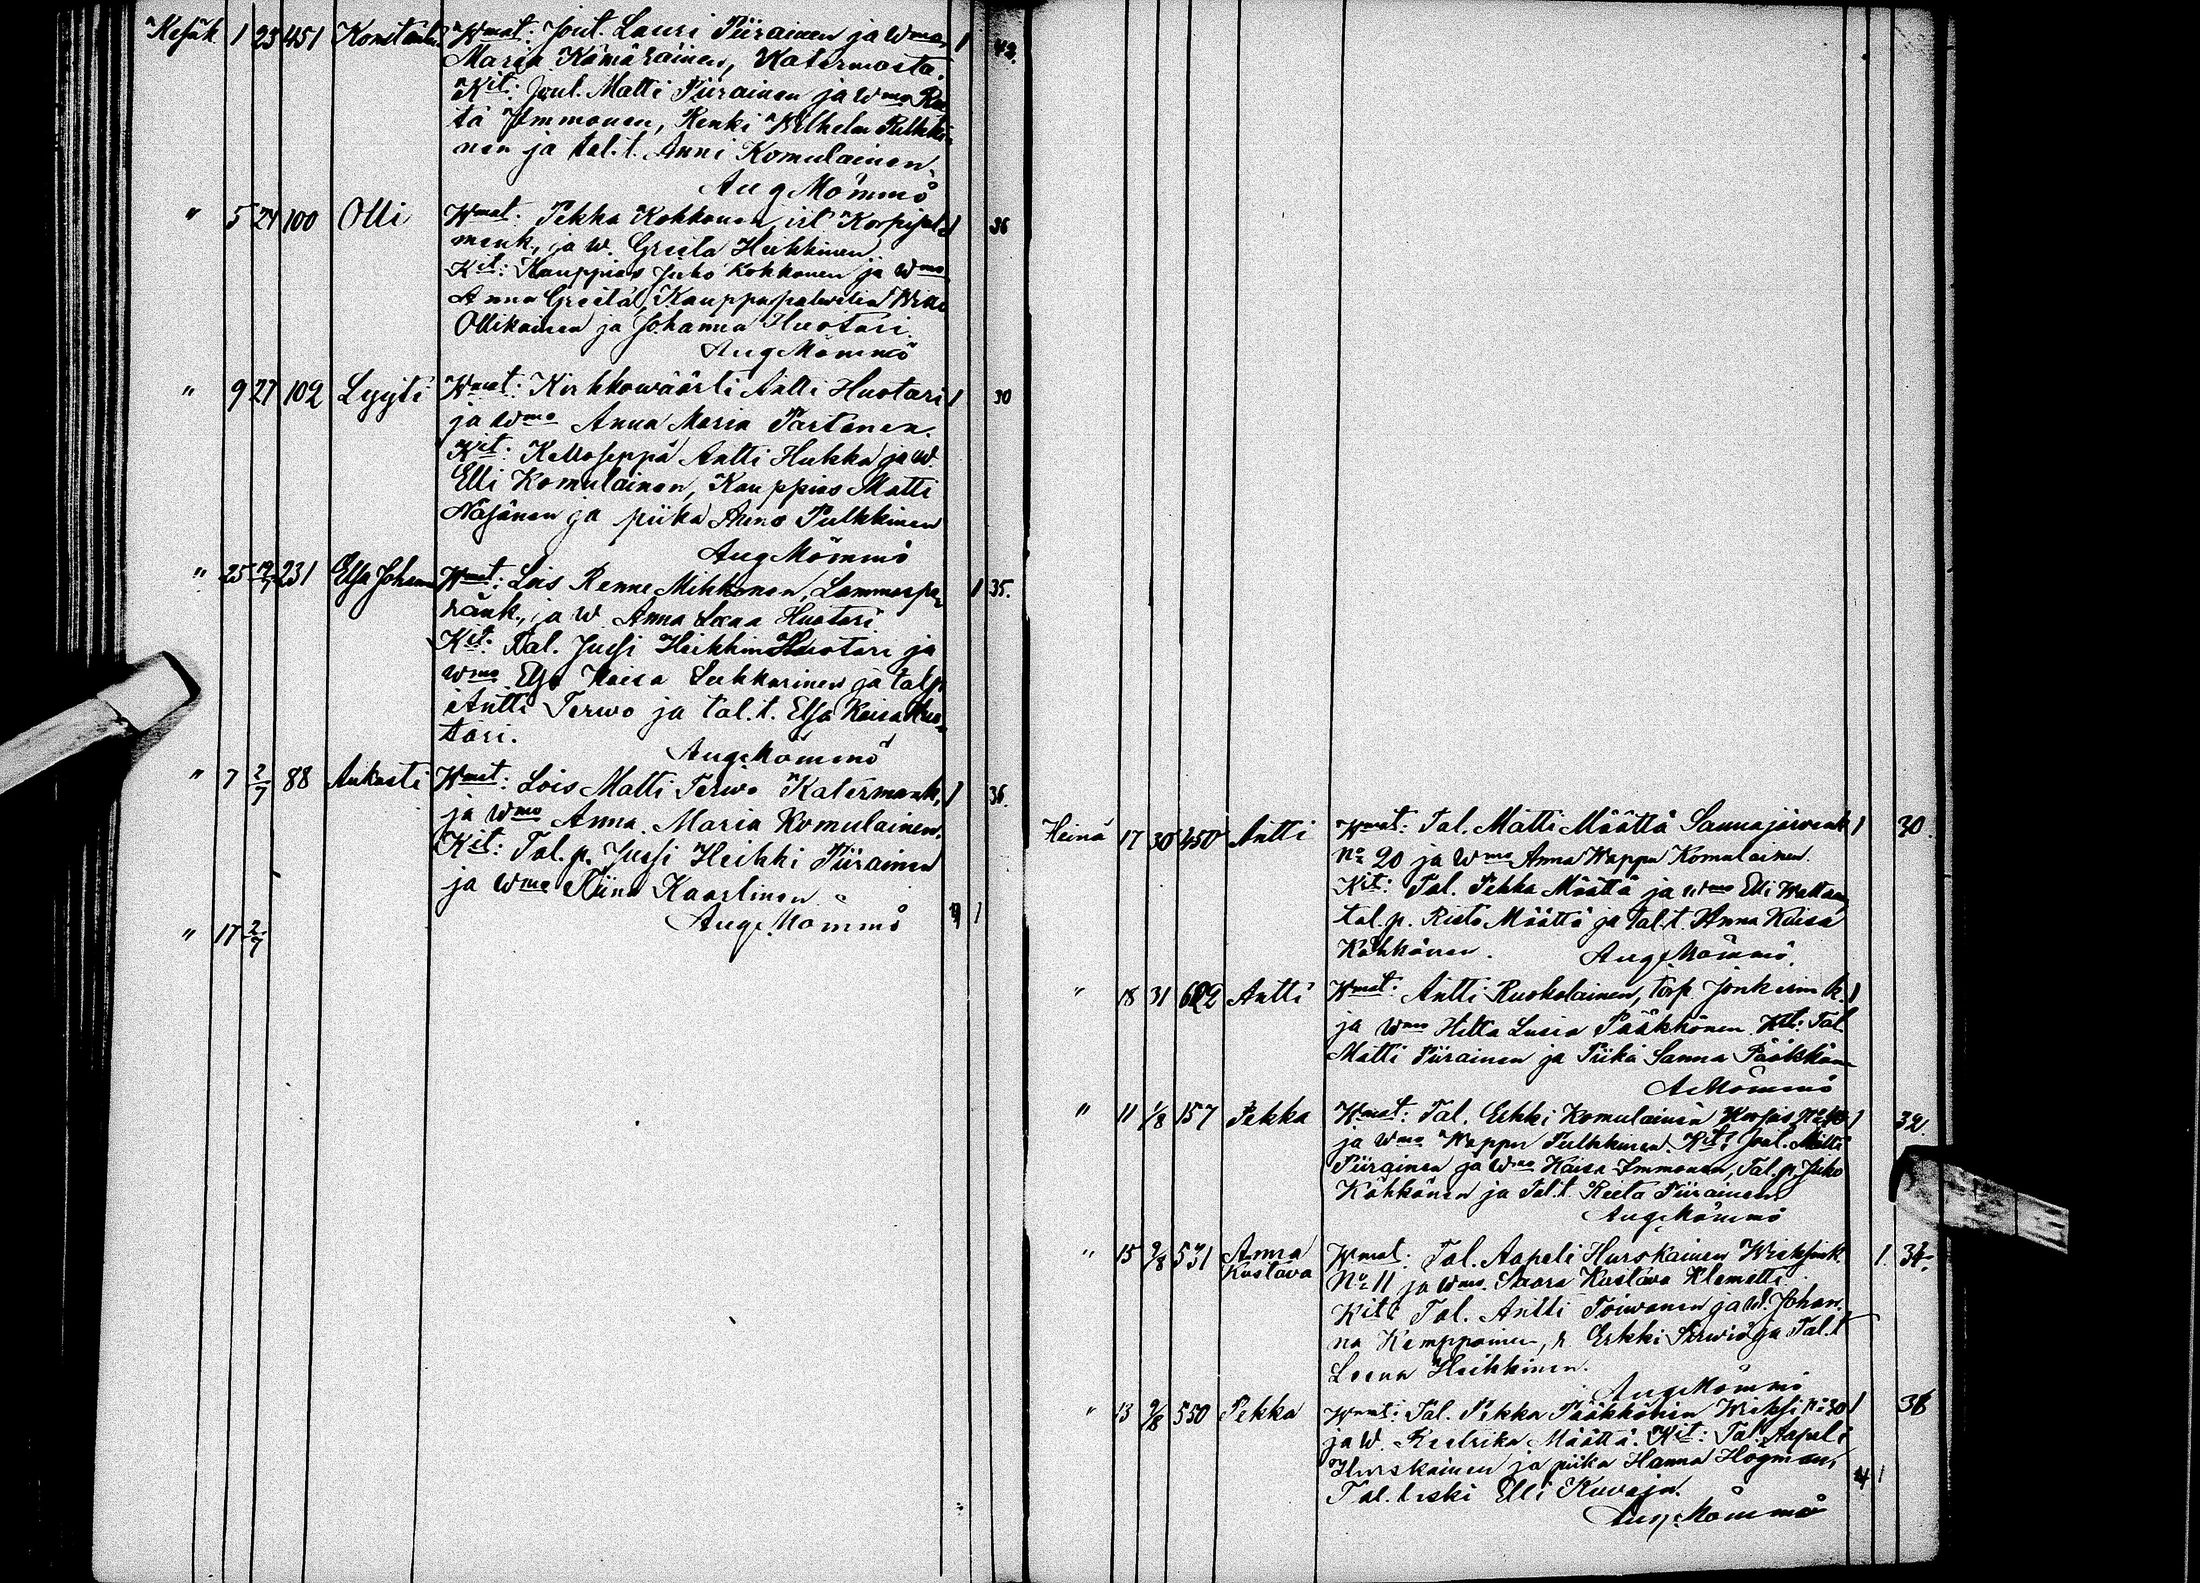 Kesäk 1 23 451 Konstantin Wmat: Jout. Lauri Piirainen ja Wmo 1 42.
Maria Kämäräinen, Katermasta.
Kit: Joul. Matti Piirainen ja Wmo Ree
ta Immonen, Renki Wilhelm Pulkki-
nen ja tal.t. Anni Komulainen.
Aug Mömmö
" 5 24 100 Olli Wmat. Pekka Kohkonen, irt Korpijal- 1 36
menk., ja w. Greeta Heikkinen.
Kit: Kauppias Juho Kokkonen ja Wmo
Anna Greeta, Kauppapalvelia
Ollikainen ja Johanna Huotari.
Aug Mömmö
" 9 27 102 Lyyti Wmat: Kirkkowäärti Antti Huotari 1 30
ja Wmo Anna Maria Partanen.
Kit: Kelloseppä Antti Hukka ja W.
Elli Komulainen, Kauppias Matti
Näsänen ja piika Anna Pulkkinen
Aug Mömmö
" 25 231 Elsa Johanna Wmat: Lois Renne Mikkonen, Lammaspe- 1 35.
ränk., ja W. Anna Leena Huotari
Kit. Tal. Jussi Heikkin Huotari ja
wmo Elsa Kaisa Leskkarinen ja tal.p.
Antti Terwo ja tal.t. Elsa Kaisa Huo-
tari.
Aug Mömmö
" 7 2/7 88 Aukusti Wmat: Lois Matti Terwo Katermank, 1 36.
ja Wmo Anna Maria Komulainen.
Kit: Tal.p. Jussi Heikki Piirainen
ja Wmo Riina Kaarlinen
Aug Mömmö 1
" 17 2/7
Heinä 17 30 450 Antti Wmat: Tal. Matti Määttä Saunajärwenk 1 30.
No 20 ja Wmo Anna Wappu Komulainen.
Kit: Tal. Pekka Määttä ja wmo Elli
tal.p. Risto Määttä ja tal.t. Anna Kaisa
Kähkönen. Aug Mömmö.
" 18 31 Antti Wmat. Antti Ruokolainen, torp. Jonkerin k. 1
ja Wmo Hilla Lusia Pääkkönen Kit: Tal.
Matti Piirainen ja Piika Sanna Pääkkön
A Mömmö
" 11 1/8 157 Pekka Wmat: Tal. Erkki Komulainen 1 32.
ja Wmo Wappu Pulkkinen. Kit: Joul. Matti
Piirainen ja Wmo Kaisa Immonen, Tal.p. Juho
Kähkönen ja Tal.t. Reeta Piirainen
Aug Mömmö
" 15 9/8 531 Anna Wmat: Tal. Aapeli Hurskainen Wieksink. 1. 34.
Kustava No 11 ja wmo. Saara Kustava Klemetti
Kit: Tal. Antti Toiwanen ja W. Johan-
na Kemppainen, r. Erkki Terwo ja Tal.t
Leena Heikkinen.
Aug Mömmö
" 13 9/8 550 Pekka Wmat: Tal. Pekka Pääkkönen Wieksi No 30 1 38
ja W. Reetrika Määttä. Kit: Tal. Aapeli
Hurskainen ja piika Hanna Högman,
Tal. leski Elli Kuvaja. 4 1
Aug Mömmö